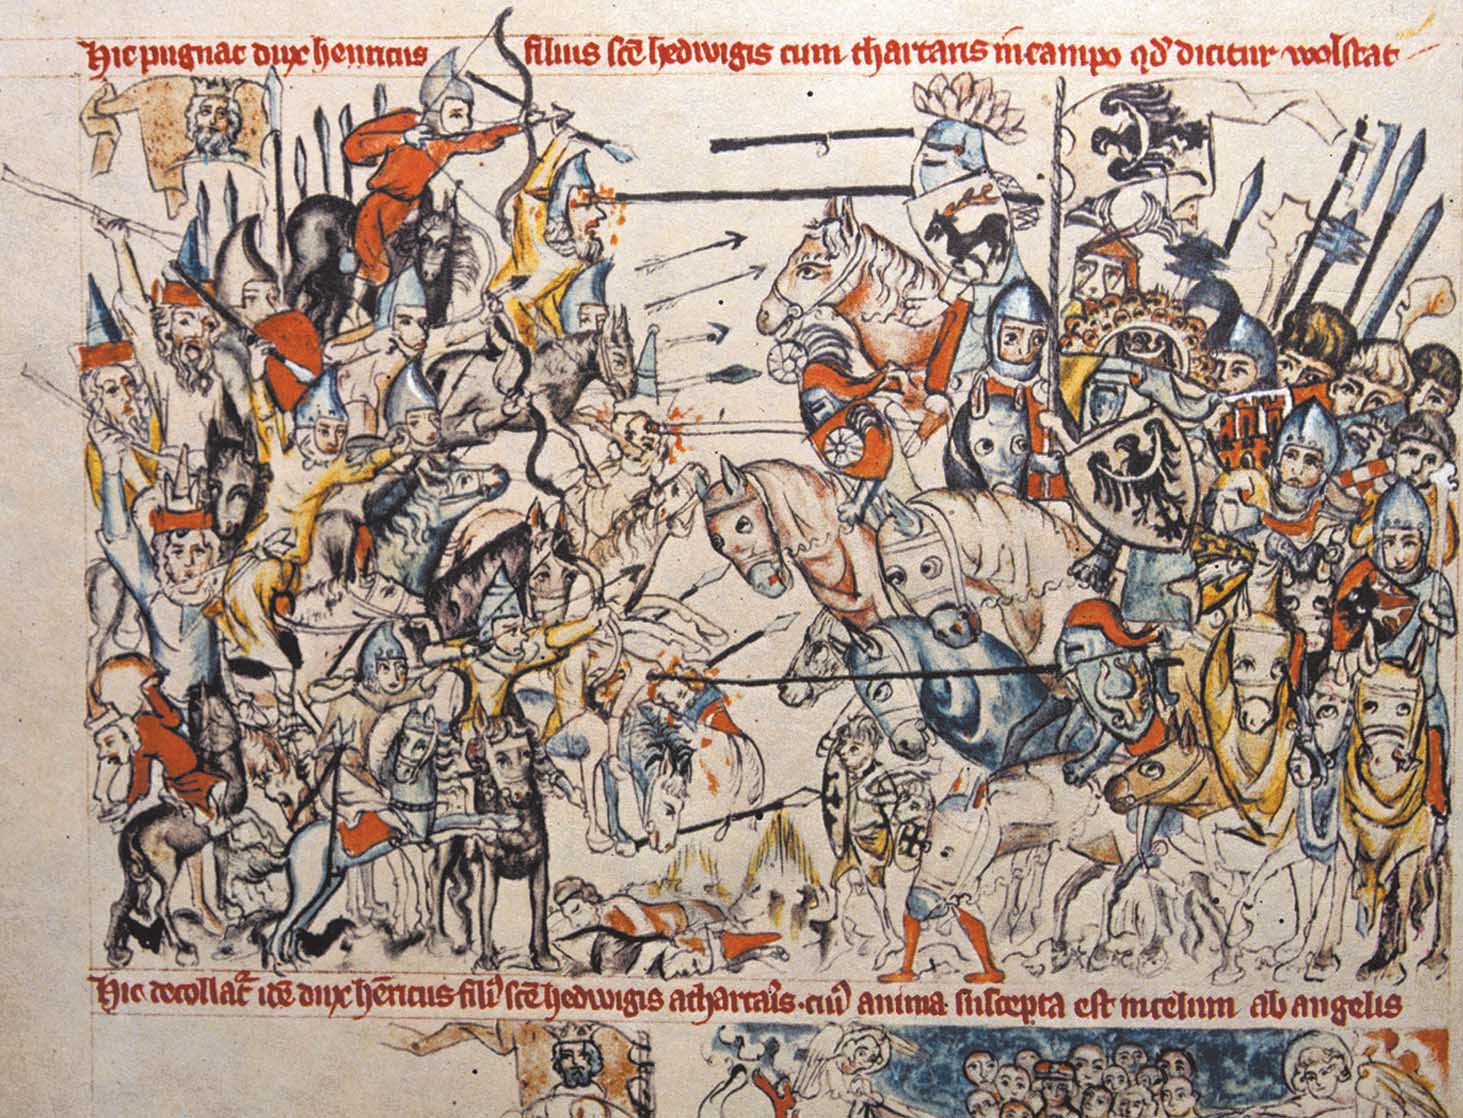 Hic pugnat dux henricus filius sce hedwigis cum thartaris in campo qd dicitur wolstat
Hic decollatr ide dux henricus fili sce hedwigis a thartais. cui anima suscepta est in celum ab angelis